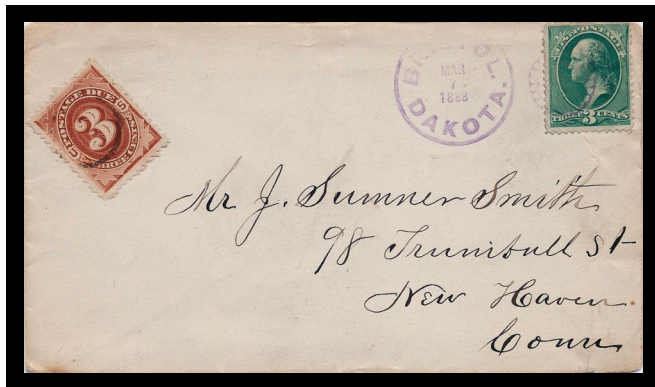 BRISTOL.
MAR
7
1883
DAKOTA.
U.S. POSTAGE
THREE 3 CENTS
POSTAGE DUE
3
THREE CENTS
Mr J. Sumner Smith
98 Trumbull St
New Haven
Conn